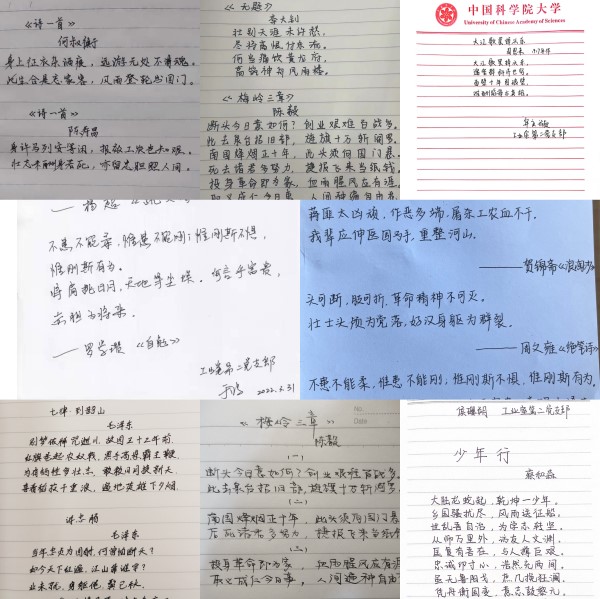 《诗一首》
何叔衡
身上征衣杂酒痕，远游无处不消魂。
此生合是忘家客，风雨登轮出国门。
《诗一首》
陈寿昌
身许马列安等闲，报效工农岂知艰。
壮志未酬身若死，亦留忠胆照人间。
《无题》
李大钊
壮别天涯未许愁，
尽将离恨付东流。
何当痛饮黄龙府，
高筑神州风雨楼。
《梅岭三章》
陈毅
断头今日意如何？创业艰难百战多。
此去泉台招旧部，旌旗十万斩阎罗。
南国烽烟正十年，此头须向国门悬。
后死诸君多努力，捷报飞来当纸钱。
投身革命即为家，血雨腥风应有涯。
取义成仁今日事，人间遍种自由花
中国科学院大学
University of Chinese Academy of Sciences
大江歌罢掉头东
周恩来
大江歌罢掉头东，
邃密群科济世穷。
面壁十年图破壁，
难酬蹈海亦英雄。
工业室第二党支部
不患不能柔，惟患不能刚；惟刚斯不惧，
惟刚斯有为。
将肩挑日月，天地等尘埃。何言乎富贵，
赤胆为将来。
——罗学瓒 《自勉》
工业室第二党支部
2022.3.31
军阀太凶顽，作恶多端，屠杀工农血不干。
我辈应伸医国手，重整河山。
——贺锦斋《浪淘沙》
头可断，肢可折，革命精神不可灭。
壮士头颅为党落，好汉身躯为群裂。
——周文雍《绝笔诗》
不患不能柔，惟患不能刚，惟刚斯不惧，惟刚斯有为。
七律·到韶山
毛泽东
别梦依稀咒逝川，故园三十二年前。
红旗卷起农奴戟，黑手高悬霸主鞭。
为有牺牲多壮志，敢教日月换新天。
喜看稻菽千重浪，遍地英雄下夕烟。
毛泽东
No.
Date
《梅岭三章》
陈毅
(一)
断头今日意如何？创业艰难百战多。
此去泉台招旧部，旌旗十万斩阎罗
(二)
南国烽烟正十年，此头须向国门悬
后死诸君多努力，捷报飞来当纸
(三)
投身革命即为家，血雨腥风应有
取义成仁今日事，人间遍种自由
工业室第二党支部
少年行
蔡和森
大陆龙蛇起，乾坤一少年。
乡国骚扰尽，风雨送征船。
世乱吾自治，为学志转坚。
从师万里外，访友人文渊。
匡复有吾在，与人撑巨艰。
忠诚印寸心，浩然充两间。
虽无鲁阳戈，庶几挽狂澜。
凭舟衡国变，意志鼓黎元。